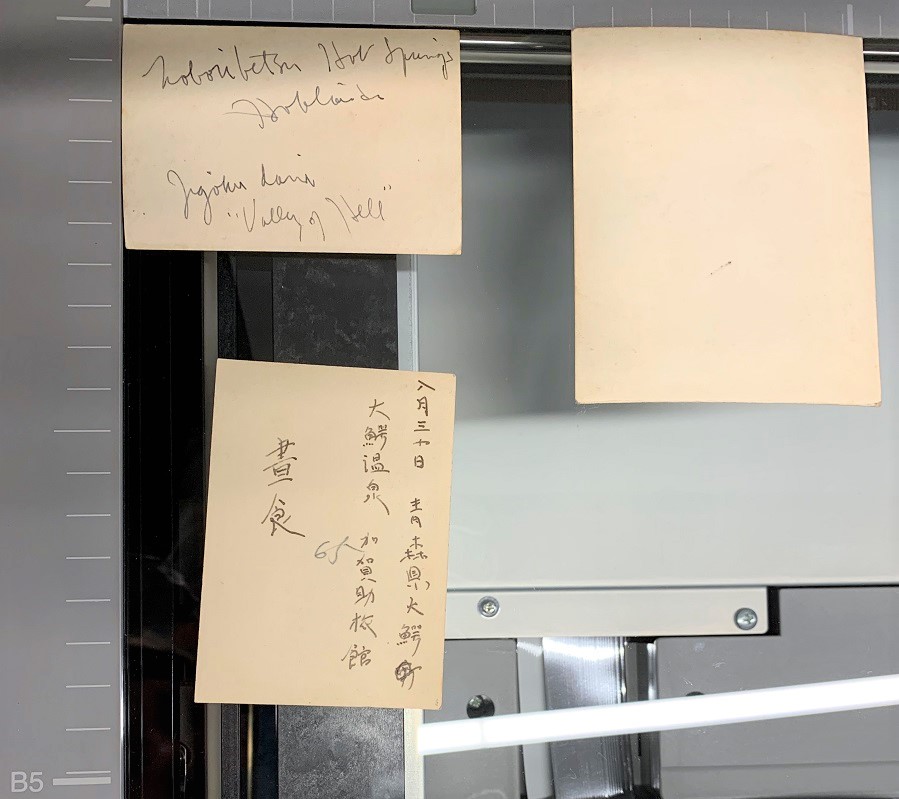 Noboribetsu Hot Springs
Hokkaido
Jigoku dani
"Valley of Hell"
八月三十日 青森県大鰐町
大鰐温泉 加賀助旅館
晝食
B5